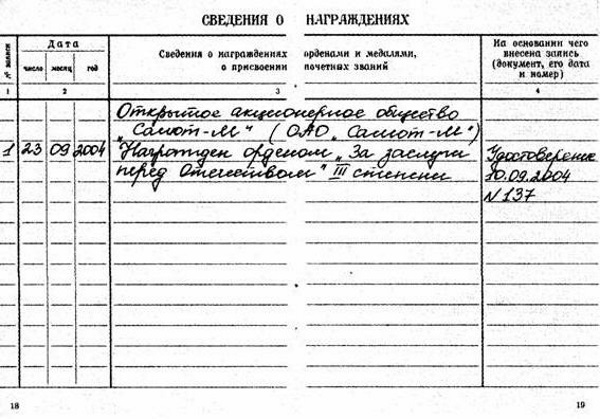 СВЕДЕНИЯ О НАГРАЖДЕНИЯХ
№ записи
Дата
Сведения о награждениях орденами и медалями,
о присвоении почетных званий
На основании чего
внесена запись
(документ, его дата
и номер)
число месяц год
1 2 3 4
Открытое акционерное общество
„Салют-М" (ОАО „Салют-М")
1 23 09 2004 Награжден орденом „За заслуги Удостоверение
перед Отечеством" III степени 10.09.2004
N 137
18 19